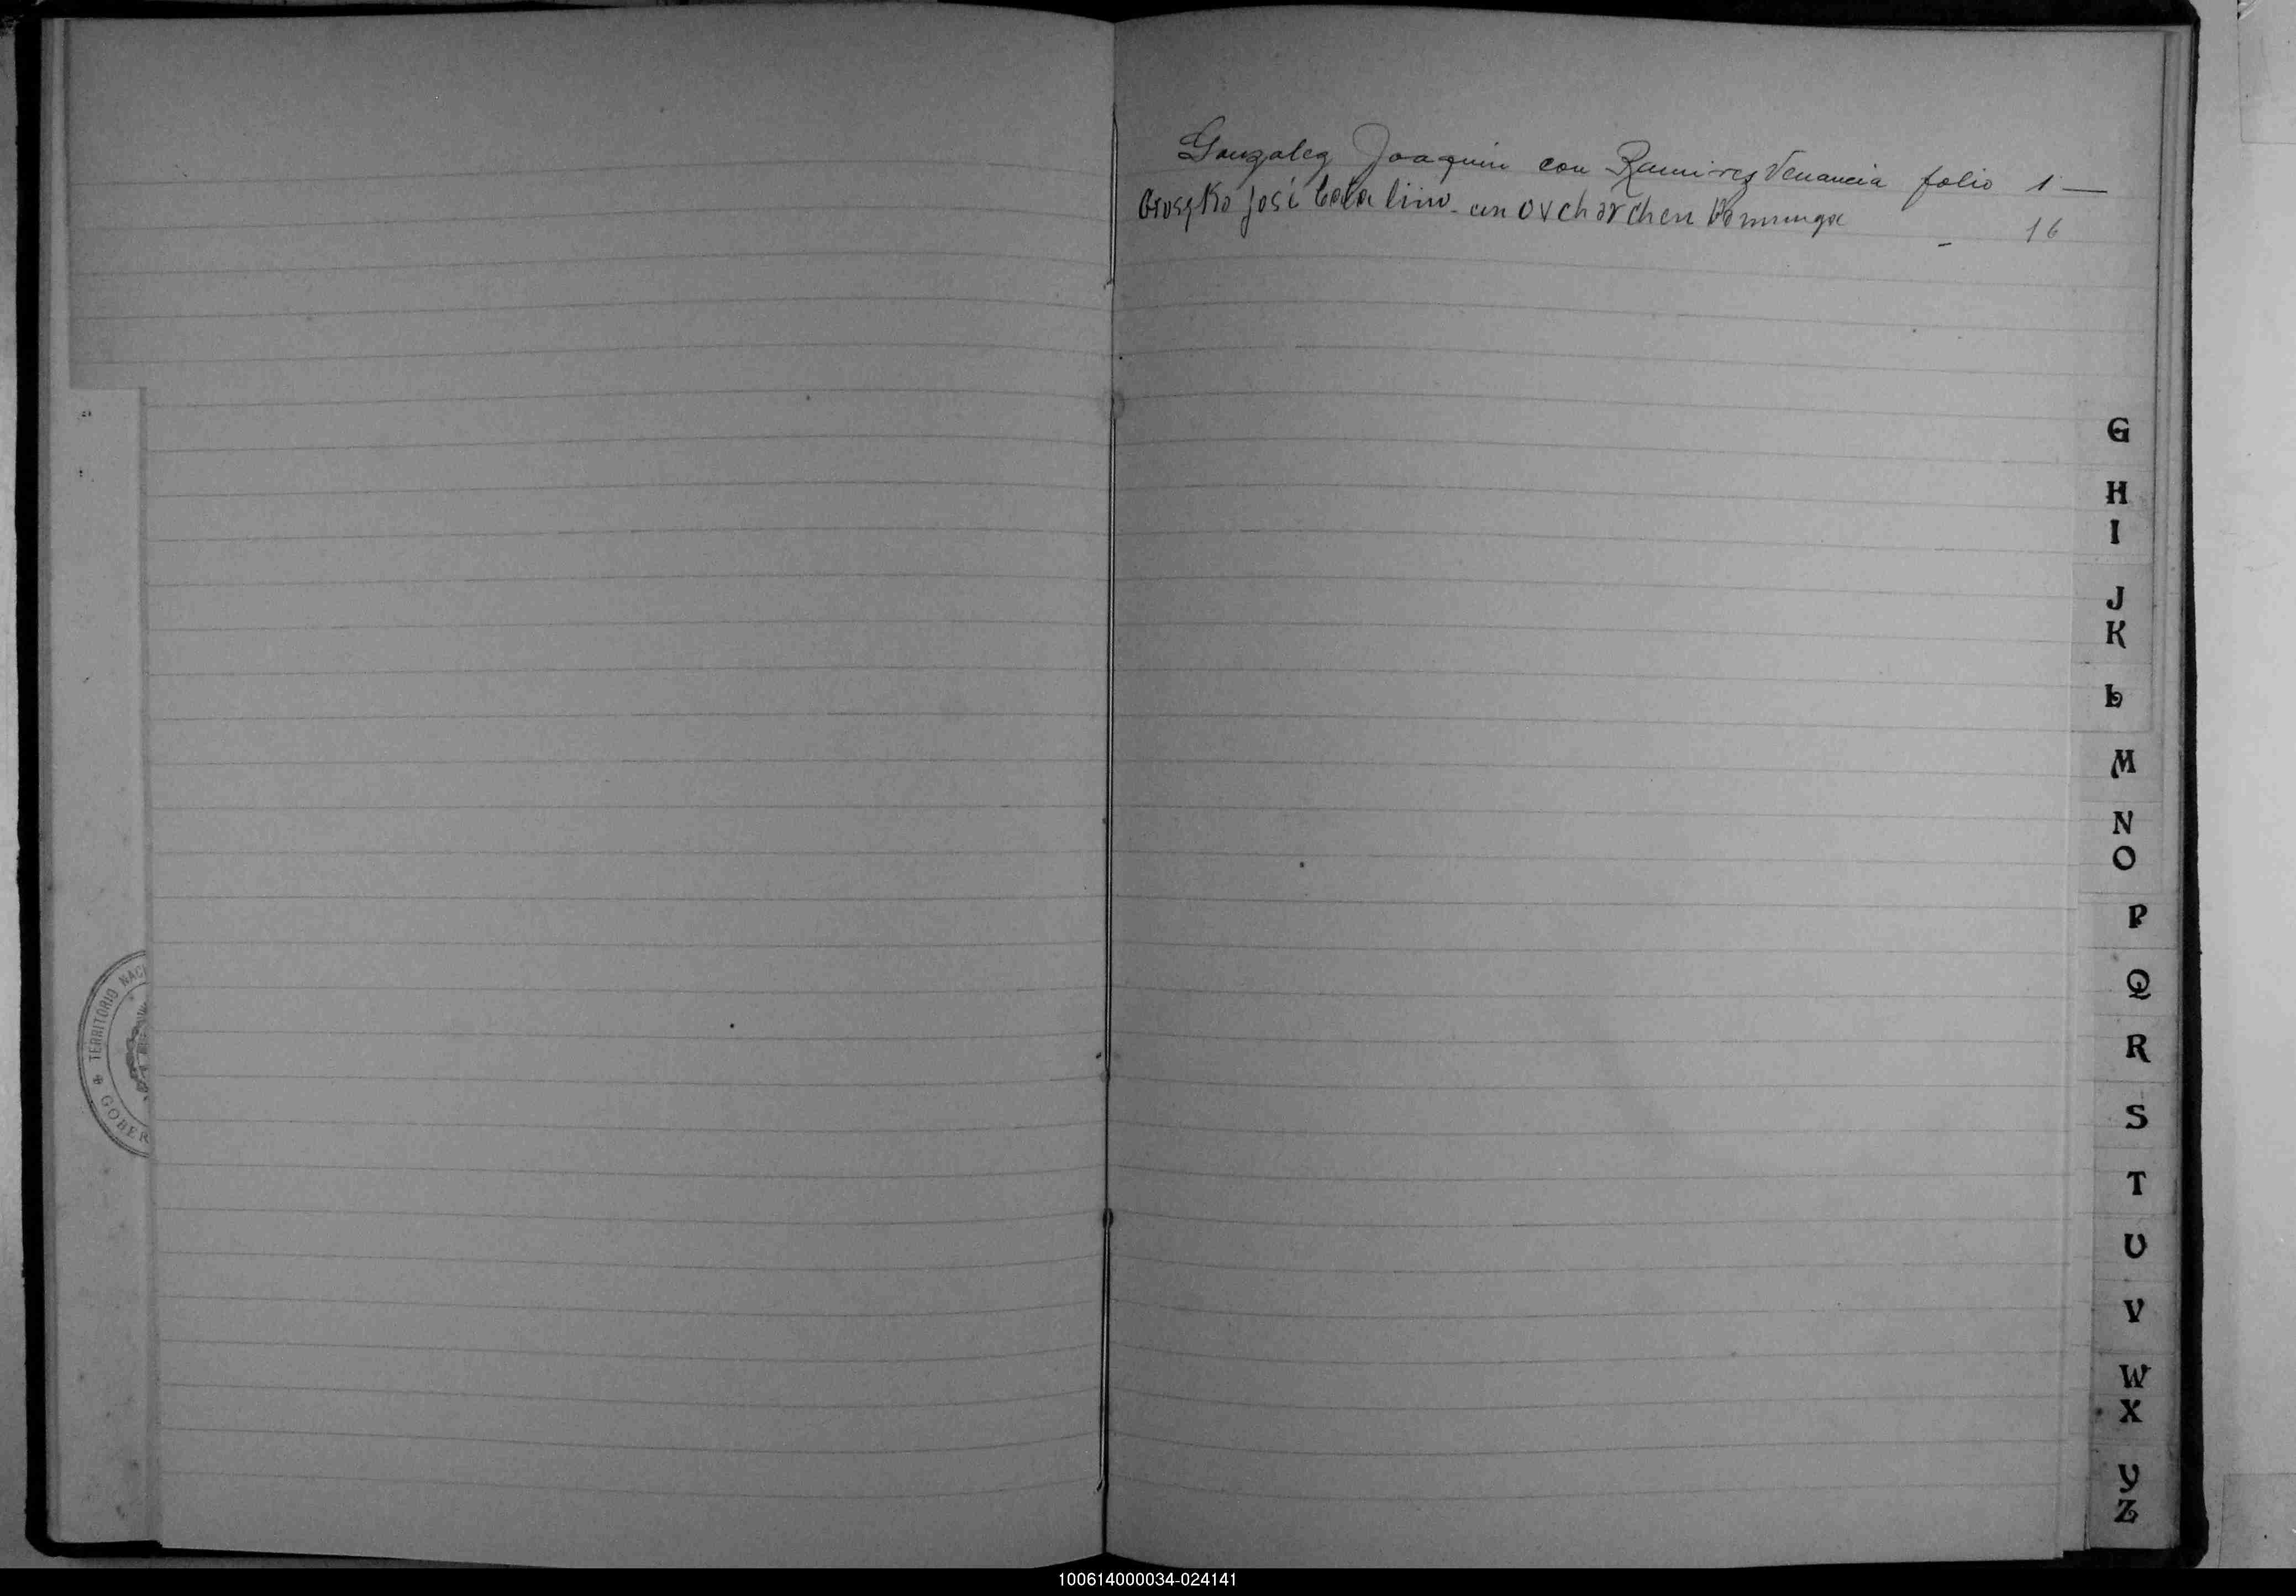 Gonzalez Joaquin con Ramirez Venancia folio 1 —
Groszko José Catalino - con Ovcharchen Dominga - 16
G
H
I
J
K
L
M
N
O
P
Q
R
S
T
U
V
W
X
Y
Z
TERRITORIO NACI
GOBER
100614000034-024141